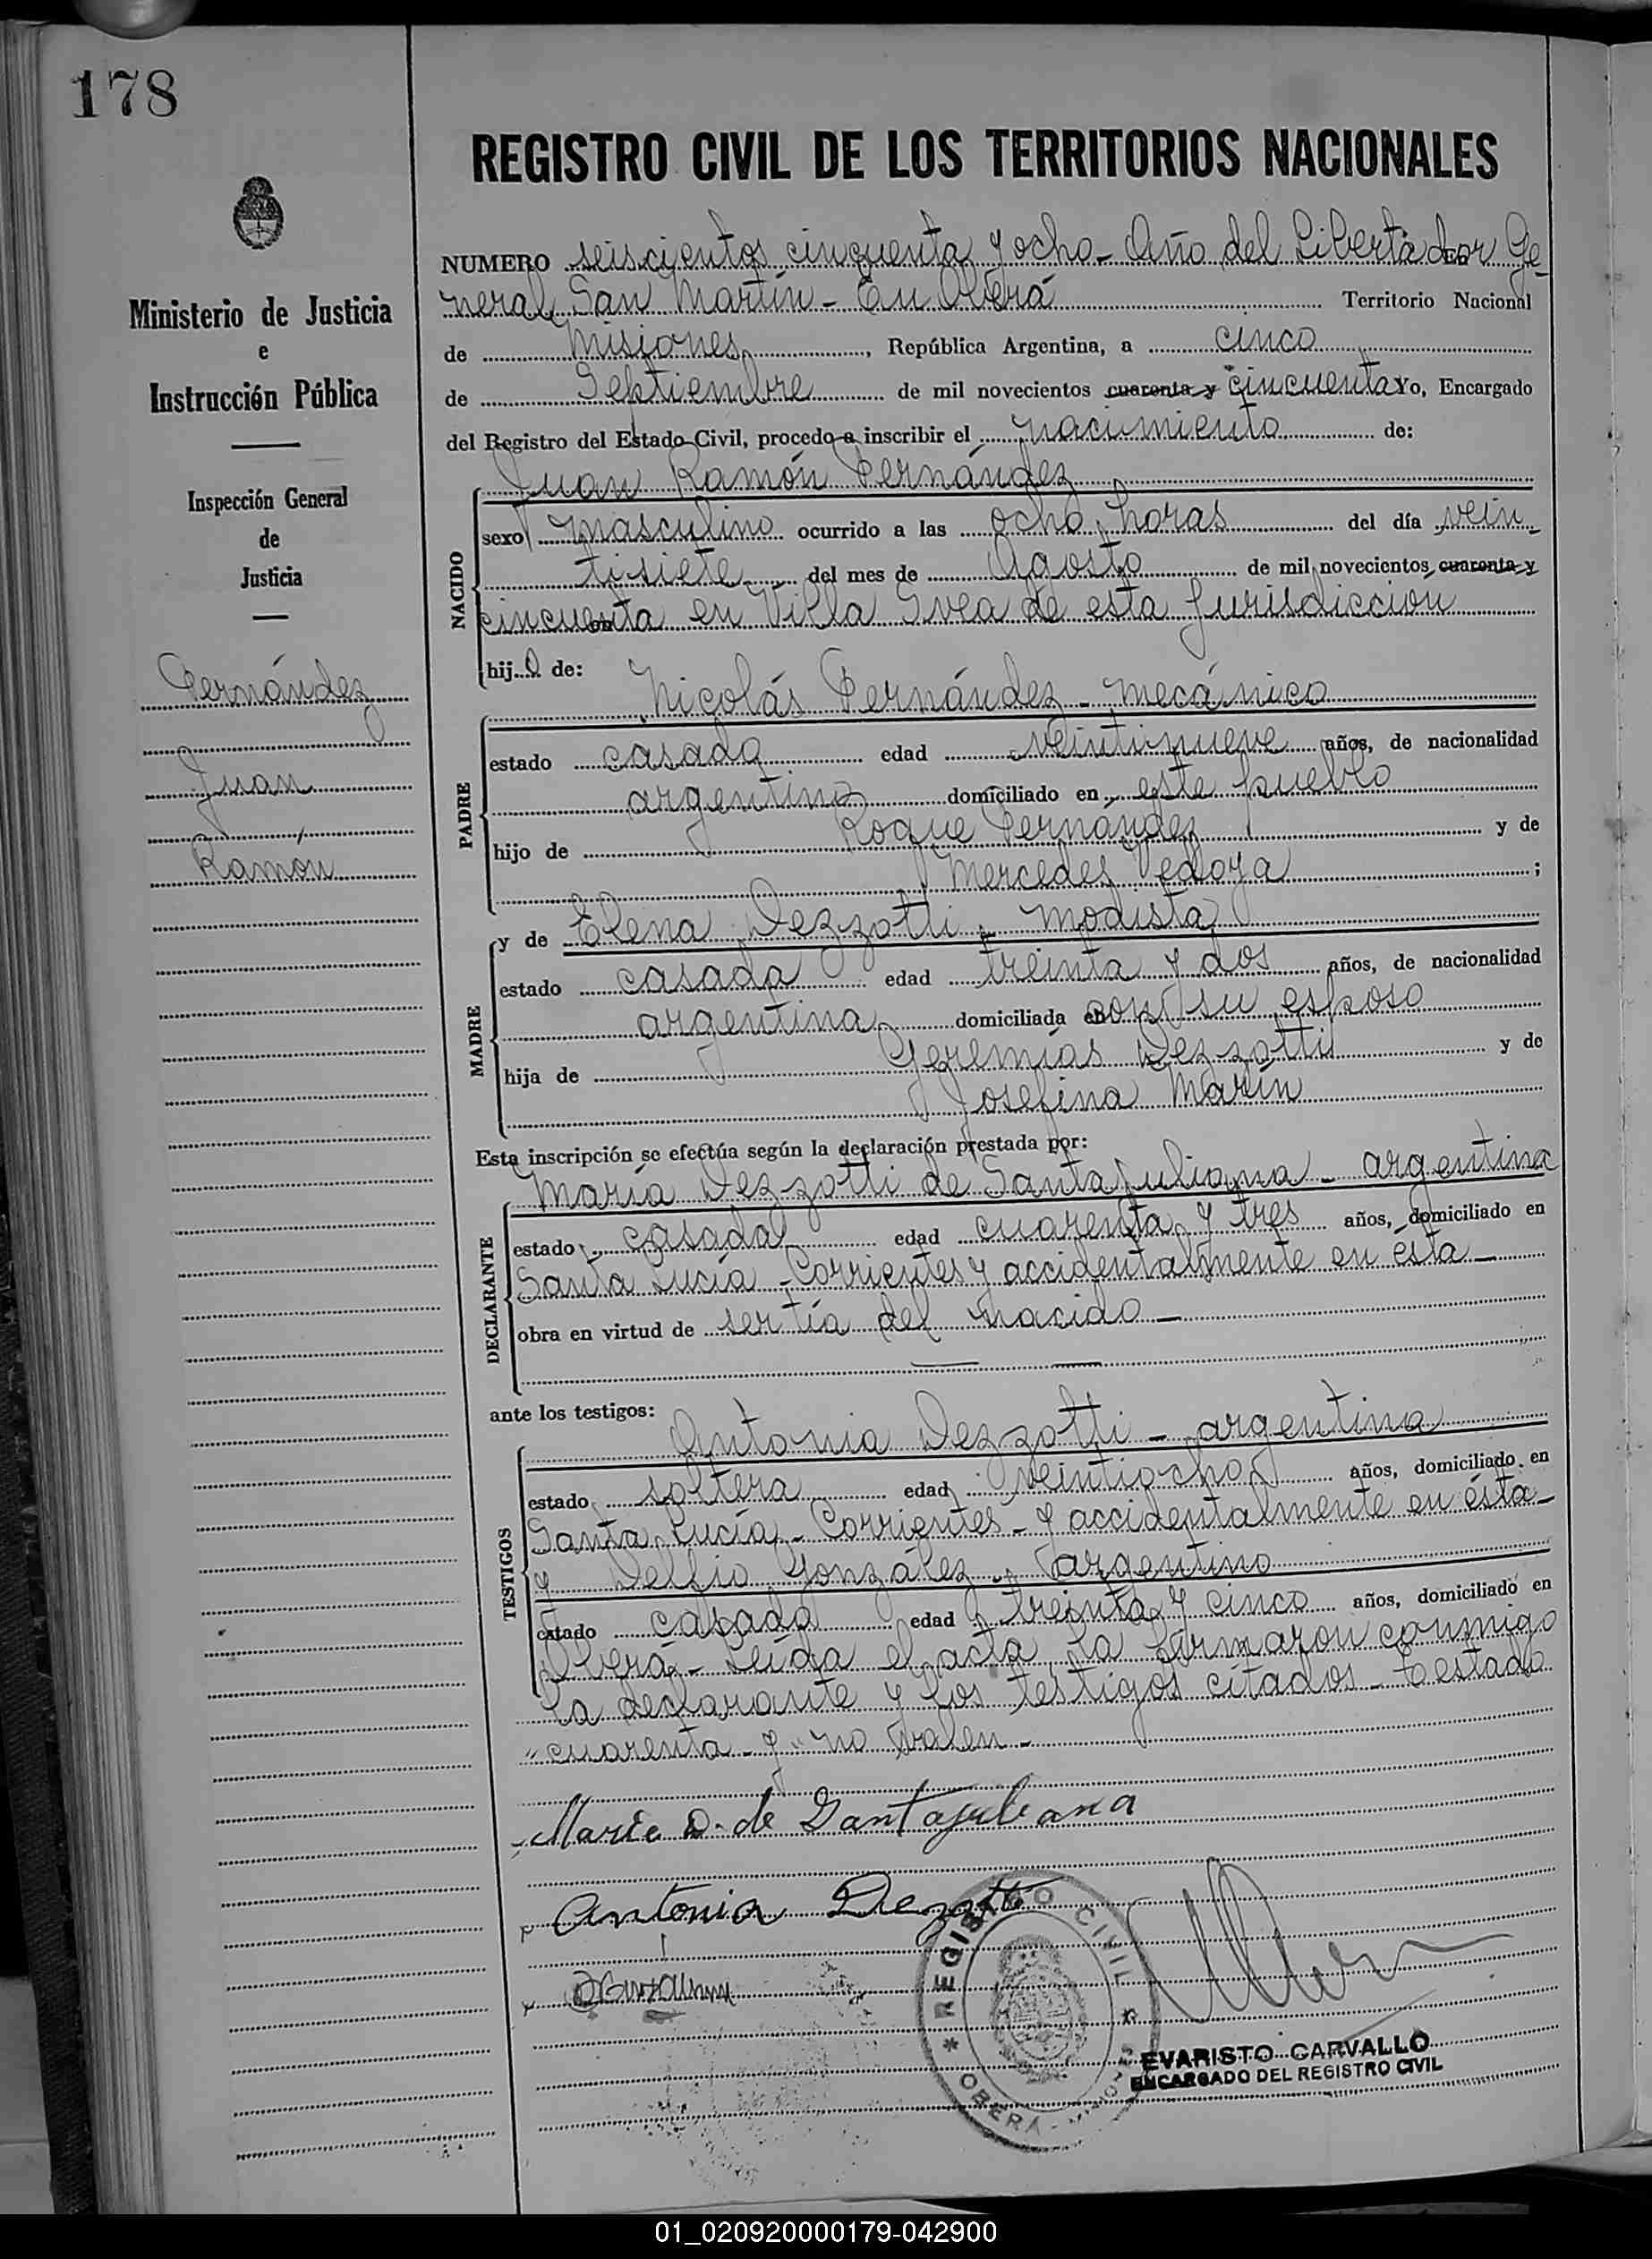 178
REGISTRO CIVIL DE LOS TERRITORIOS NACIONALES
Ministerio de Justicia
e
Instrucción Pública
Inspección General
de
Justicia
Fernández
Juan
Ramón
NUMERO seiscientos cincuenta y ocho - Año del Libertador Ge-
neral San Martín - En Oberá Territorio Nacional
de Misiones, República Argentina, a cinco
de Septiembre de mil novecientos cuarenta y cincuenta Yo, Encargado
del Registro del Estado Civil, procedo a inscribir el nacimiento de:
Juan Ramón Fernández
NACIDO
sexo masculino ocurrido a las ocho horas del día vein-
tisiete del mes de Agosto de mil novecientos cuarenta y
cincuenta en Villa Svea de esta jurisdiccion
hijo de:
Nicolás Fernández - mecánico
PADRE
estado casado edad veintinueve años, de nacionalidad
argentino domiciliado en este pueblo
hijo de Roque Fernández y de
Mercedes Vedoya ;
y de Elena Dezzotti - modista
MADRE
estado casada edad treinta y dos años, de nacionalidad
argentina domiciliada en con su esposo
hija de Geremías Dezzotti y de
Josefina Marín
Esta inscripción se efectúa según la declaración prestada por:
María Dezzotti de Santajuliana - argentina
DECLARANTE
estado casada edad cuarenta y tres años, domiciliado en
Santa Lucía - Corrientes y accidentalmente en ésta -
obra en virtud de ser tía del nacido -
ante los testigos:
Antonia Dezzotti - argentina
TESTIGOS
estado soltera edad veintiocho años, domiciliado en
Santa Lucía - Corrientes - y accidentalmente en ésta -
y Delfio González - argentino
estado casado edad treinta y cinco años, domiciliado en
Oberá - Leída el acta, la firmaron conmigo
la declarante y los testigos citados - Testado
"cuarenta - y" no valen -
Maria D. de Santajuliana
Antonia Dezotti
REGISTRO CIVIL
OBERÁ
EVARISTO CARVALLO
ENCARGADO DEL REGISTRO CIVIL
01_020920000179-042900